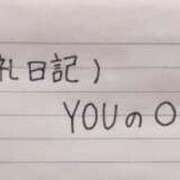 礼日記)
YOUの〇